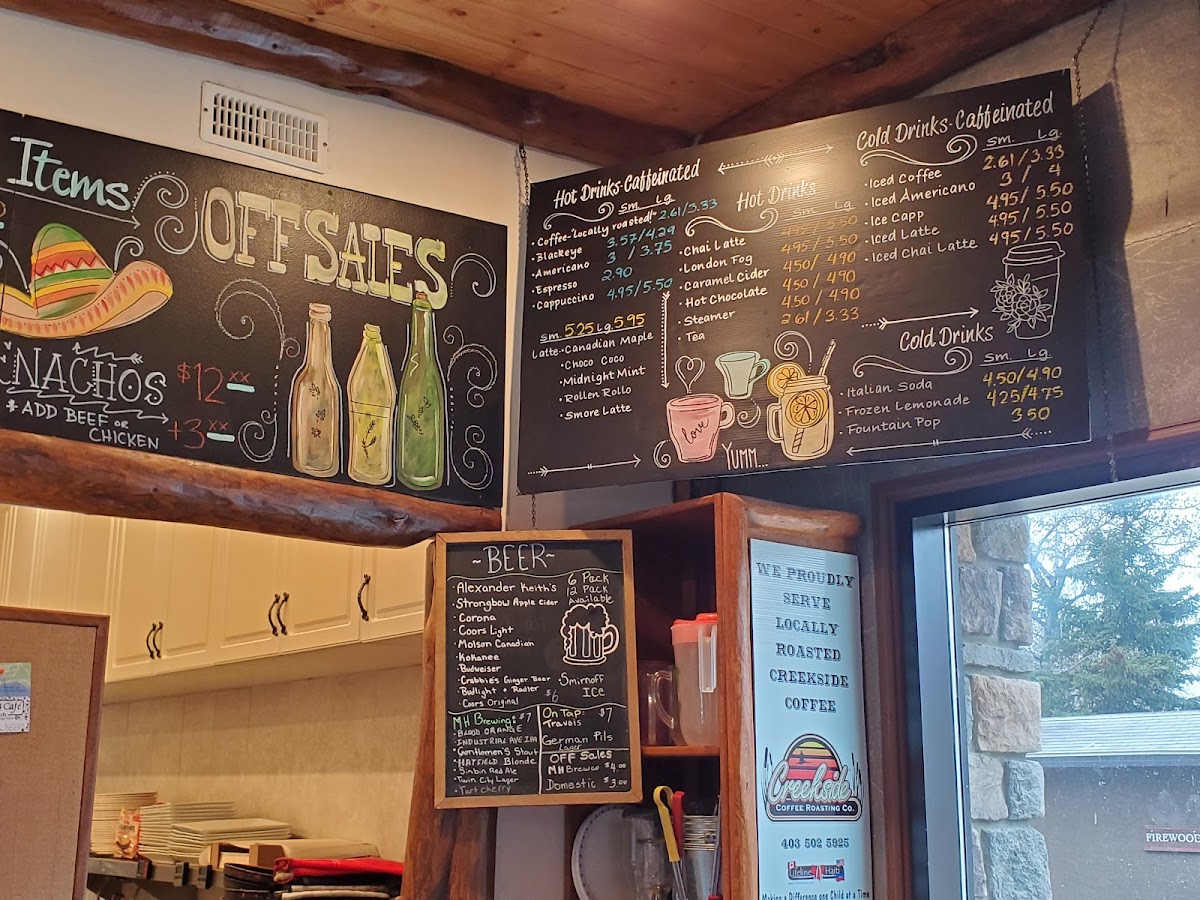 Items
OFF SALES
NACHOS $12 xx
* ADD BEEF OR
CHICKEN +3 xx
Hot Drinks-Caffeinated
Sm. Lg.
·Coffee-"locally roasted!" 2.61/3.33
·Blackeye 3.57/4.29
·Americano 3 / 3.75
·Espresso 2.90
·Cappuccino 4.95/5.50
Sm 5.25 Lg. 5.95
Latte·Canadian Maple
·Choco Coco
·Midnight Mint
·Rollen Rollo
·Smore Latte
Hot Drinks
Sm. Lg.
·Chai Latte 4.95/5.50
·London Fog 4.95/5.50
·Caramel Cider 4.50/4.90
·Hot Chocolate 4.50/4.90
·Steamer 4.50/4.90
·Tea 2.61/3.33
love
YUMM...
Cold Drinks-Caffeinated
Sm. Lg.
·Iced Coffee 2.61/3.33
·Iced Americano 3 / 4
·Ice Capp 4.95/5.50
·Iced Latte 4.95/5.50
·Iced Chai Latte 4.95/5.50
Cold Drinks
Sm. Lg.
·Italian Soda 4.50/4.90
·Frozen Lemonade 4.25/4.75
·Fountain Pop 3.50
~BEER~
·Alexander Keith's
·Strongbow Apple Cider
·Corona
·Coors Light
·Molson Canadian
·Kokanee
·Budweiser
·Crabbie's Ginger Beer
·Budlight + Radler $6
·Coors Original
6 Pack
12 Pack
Available
·Smirnoff
ICe
MH Brewing: $7
·BLOOD ORANGE
·INDUSTRIAL AVE IPA
·Gentlemen's Stout
·HATFIELD Blonde
·Sinbin Red Ale
·Twin City Lager
·Tart cherry
On Tap: $7
Travois
German Pils
Lager
OFF Sales
MH Brewco $4.00
Domestic $3.00
WE PROUDLY
SERVE
LOCALLY
ROASTED
CREEKSIDE
COFFEE
Creekside
COFFEE ROASTING CO.
403 502 5925
Lifeline Haiti
Making a Difference one Child at a Time
FIREWOOD
Café